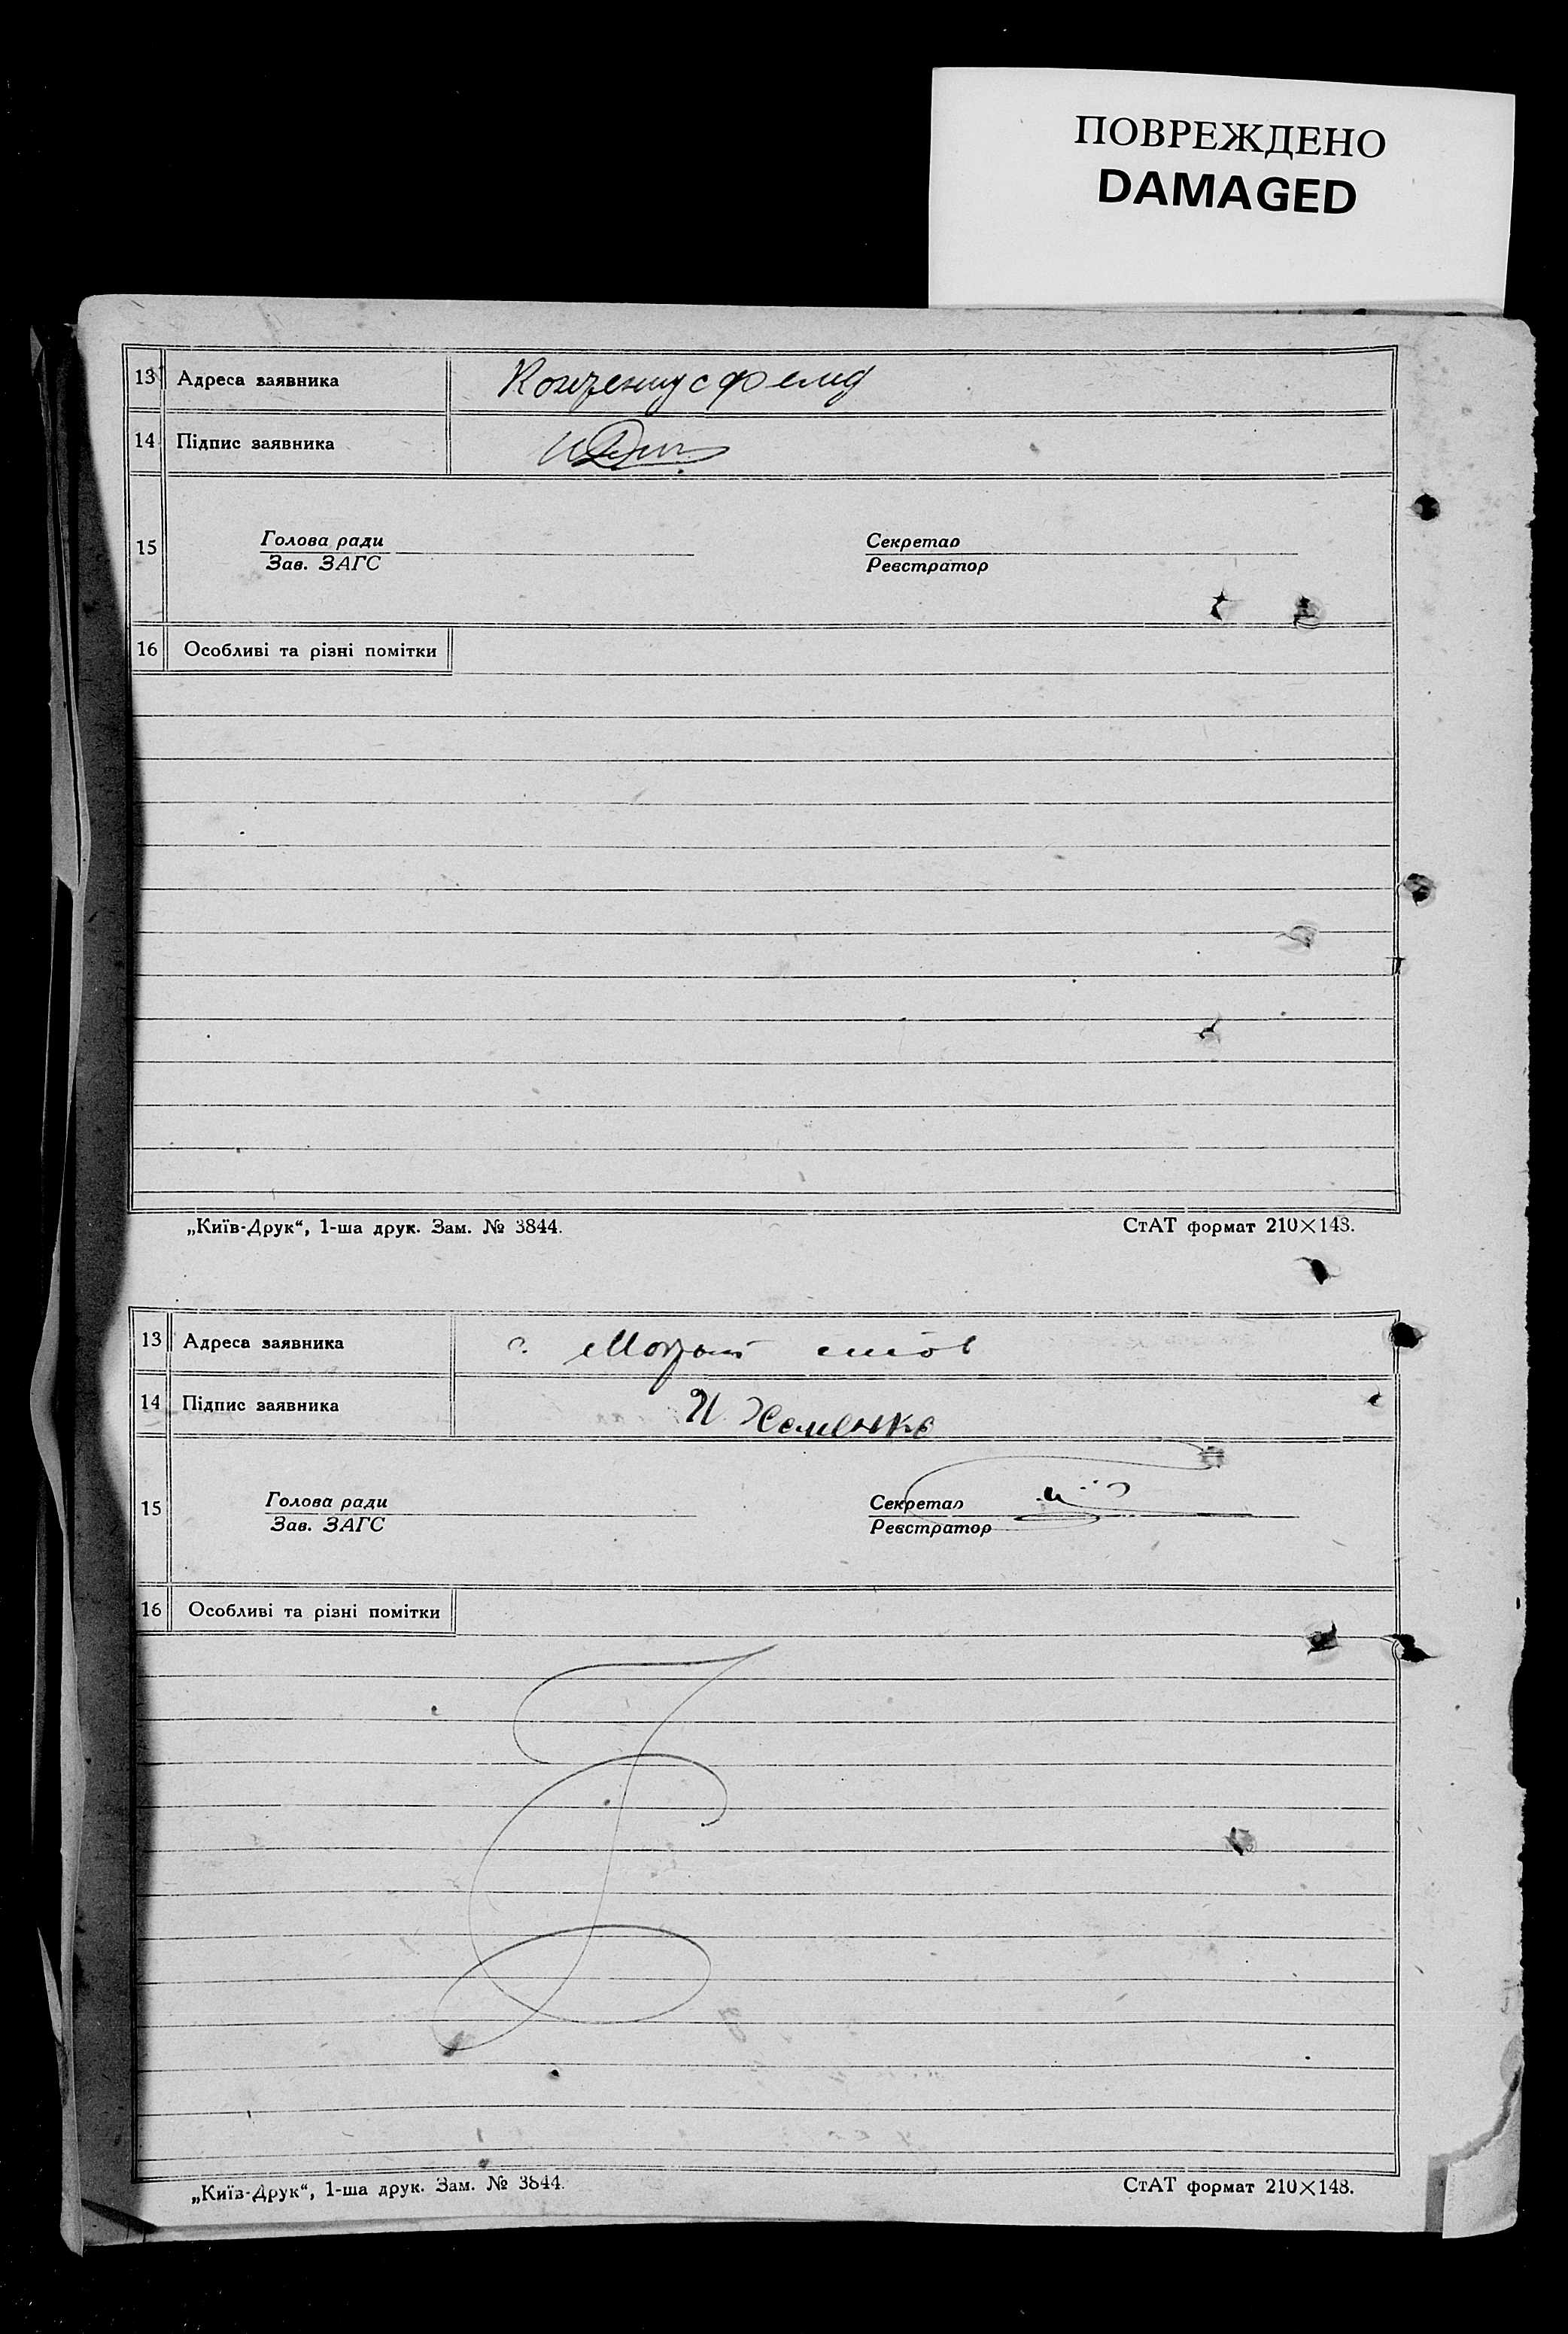 ПОВРЕЖДЕНО
DAMAGED
13 Адреса заявника
14 Підпис заявника
15 Голова ради Секретар
Зав. ЗАГС Реєстратор
16 Особливі та різні помітки
„Київ-Друк“, 1-ша друк. Зам. № 3844. СтАТ формат 210×148.
13 Адреса заявника с.
14 Підпис заявника
15 Голова ради Секретар
Зав. ЗАГС Реєстратор
16 Особливі та різні помітки
„Київ-Друк“, 1-ша друк. Зам. № 3844. СтАТ формат 210×148.